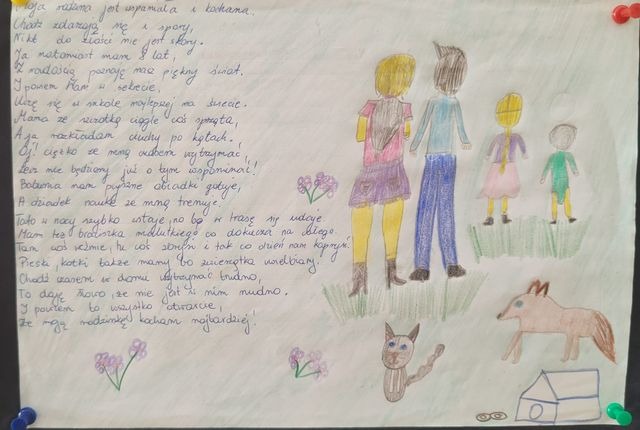 Moja rodzina jest wspaniała i kochana.
Choć zdarzają się i spory,
Nikt do złości nie jest skory.
Ja natomiast mam 8 lat,
Z radością poznaję nasz piękny świat.
I powiem Wam w sekrecie,
Uczę się w szkole najlepszej na świecie.
Mama ze szczotką ciągle coś sprząta,
A ja rozkładam ciuchy po kątach.
Oj! ciężko ze mną czasem wytrzymać,
Lecz nie będziemy już o tym wspominać!
Babunia nam pyszne obiadki gotuje,
A dziadek naukę ze mną trenuje.
Tato w nocy szybko wstaje, no bo w trasę się udaje.
Mam też braciszka malutkiego co dokucza na całego.
Tam coś weźmie, tu coś zbroi i tak co dzień nam
Pieski, kotki także mamy bo zwierzątka uwielbiamy.
Choć czasem w domu wytrzymać trudno,
To daję słowo, że nie jest z nim nudno.
I powiem to wszystko otwarcie,
Że moją rodzinkę kocham najbardziej!